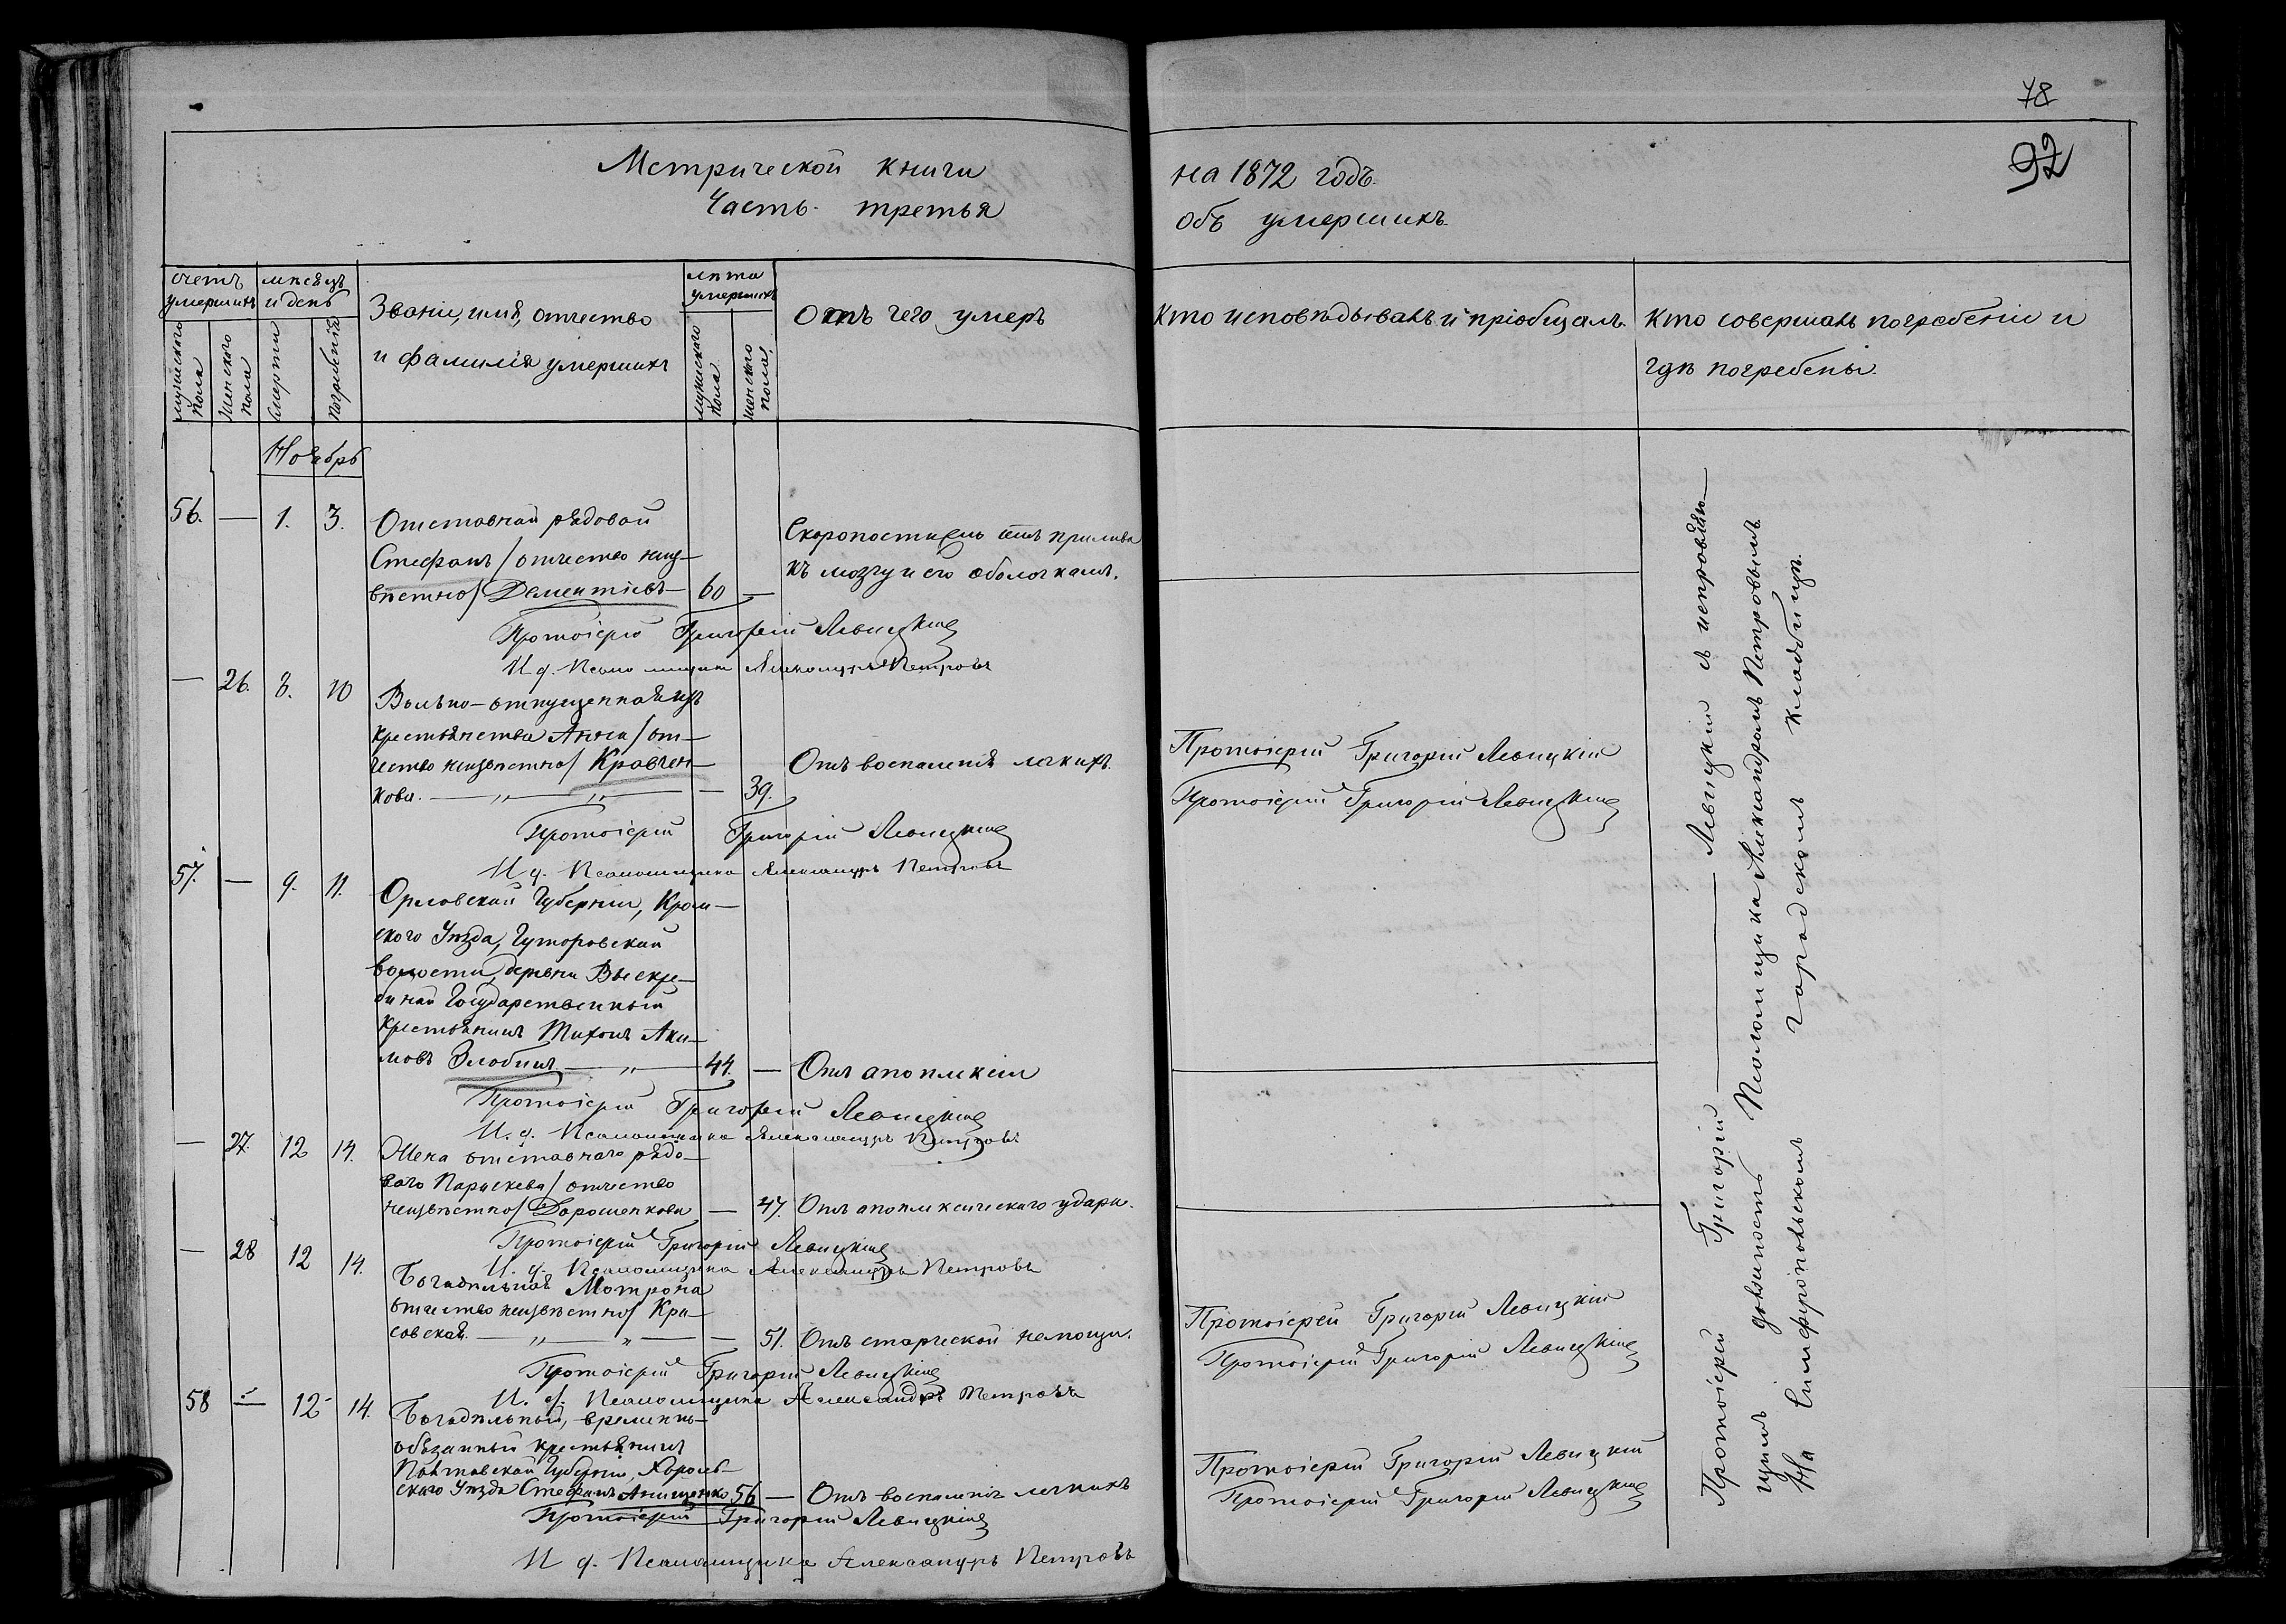 78
92
Метрической книги
Часть третья
на 1872 годъ.
объ умершихъ.
счетъ умершихъ
мужескаго пола
женскаго пола
мѣсяцъ и день
смерти
погребенія
Званіе, имя, отчество
и фамилія умершихъ
лѣта умершихъ
мужескаго пола
женскаго пола
Отъ чего умеръ
Кто исповѣдывалъ и пріобщалъ.
Кто совершалъ погребеніе и
гдѣ погребены.
Ноябрь
56. — 1. 3.
Отставной рядовой
Стефанъ / отчество неиз-
вѣстно / Дементіевъ — 60 —
Скоропостижно отъ прилива
къ мозгу и его оболочкамъ.
Протоіерей Григорій Левицкій
И. д. Псаломщика Александръ Петровъ
— 26. 8. 10
Вольно-отпущенная изъ
крестьянства Анна / от-
чество неизвѣстно / Кравчен-
кова. — „ — „ — — 39.
Отъ воспаленія легкихъ.
Протоіерей Григорій Левицкій
Протоіерей Григорій Левицкій
Протоіерей Григорій Левицкій
И. д. Псаломщика Александръ Петровъ
57. — 9. 11.
Орловской Губерніи, Кром-
ского Уѣзда, Гуторовской
волости, деревни
Государственный
крестьянинъ Тихонъ Аки-
мовъ Злобинъ — „ — 44. — Отъ апоплексіи
Протоіерей Григорій Левицкій
И. д. Псаломщика Александръ Петровъ
— 27. 12 14.
Жена отставнаго рядо-
ваго Параскева / отчество
неизвѣстно / Дорошенкова — 47. Отъ апоплексическаго удара.
Протоіерей Григорій Левицкій
И. д. Псаломщика Александръ Петровъ
— 28 12 14.
Богадѣльная Мотрона
отчество неизвѣстно / Кра-
совская. — „ — „ — — 51. Отъ старческой немощи.
Протоіерей Григорій Левицкій
Протоіерей Григорій Левицкій
Протоіерей Григорій Левицкій
И. д. Псаломщика Александръ Петровъ
58 — 12 14.
Богадѣльный, временно-
обязанный крестьянинъ
Полтавской Губерніи, Хороль-
скаго Уѣзда Стефанъ Анищенко 56 — Отъ воспаленія легкихъ
Протоіерей Григорій Левицкій
Протоіерей Григорій Левицкій
Протоіерей Григорій Левицкій
И. д. Псаломщика Александръ Петровъ
Протоіерей Григорій — Левицкій съ исправляю-
щимъ должность Псаломщика Александромъ Петровымъ
На Симферопольскомъ городскомъ кладбищѣ.